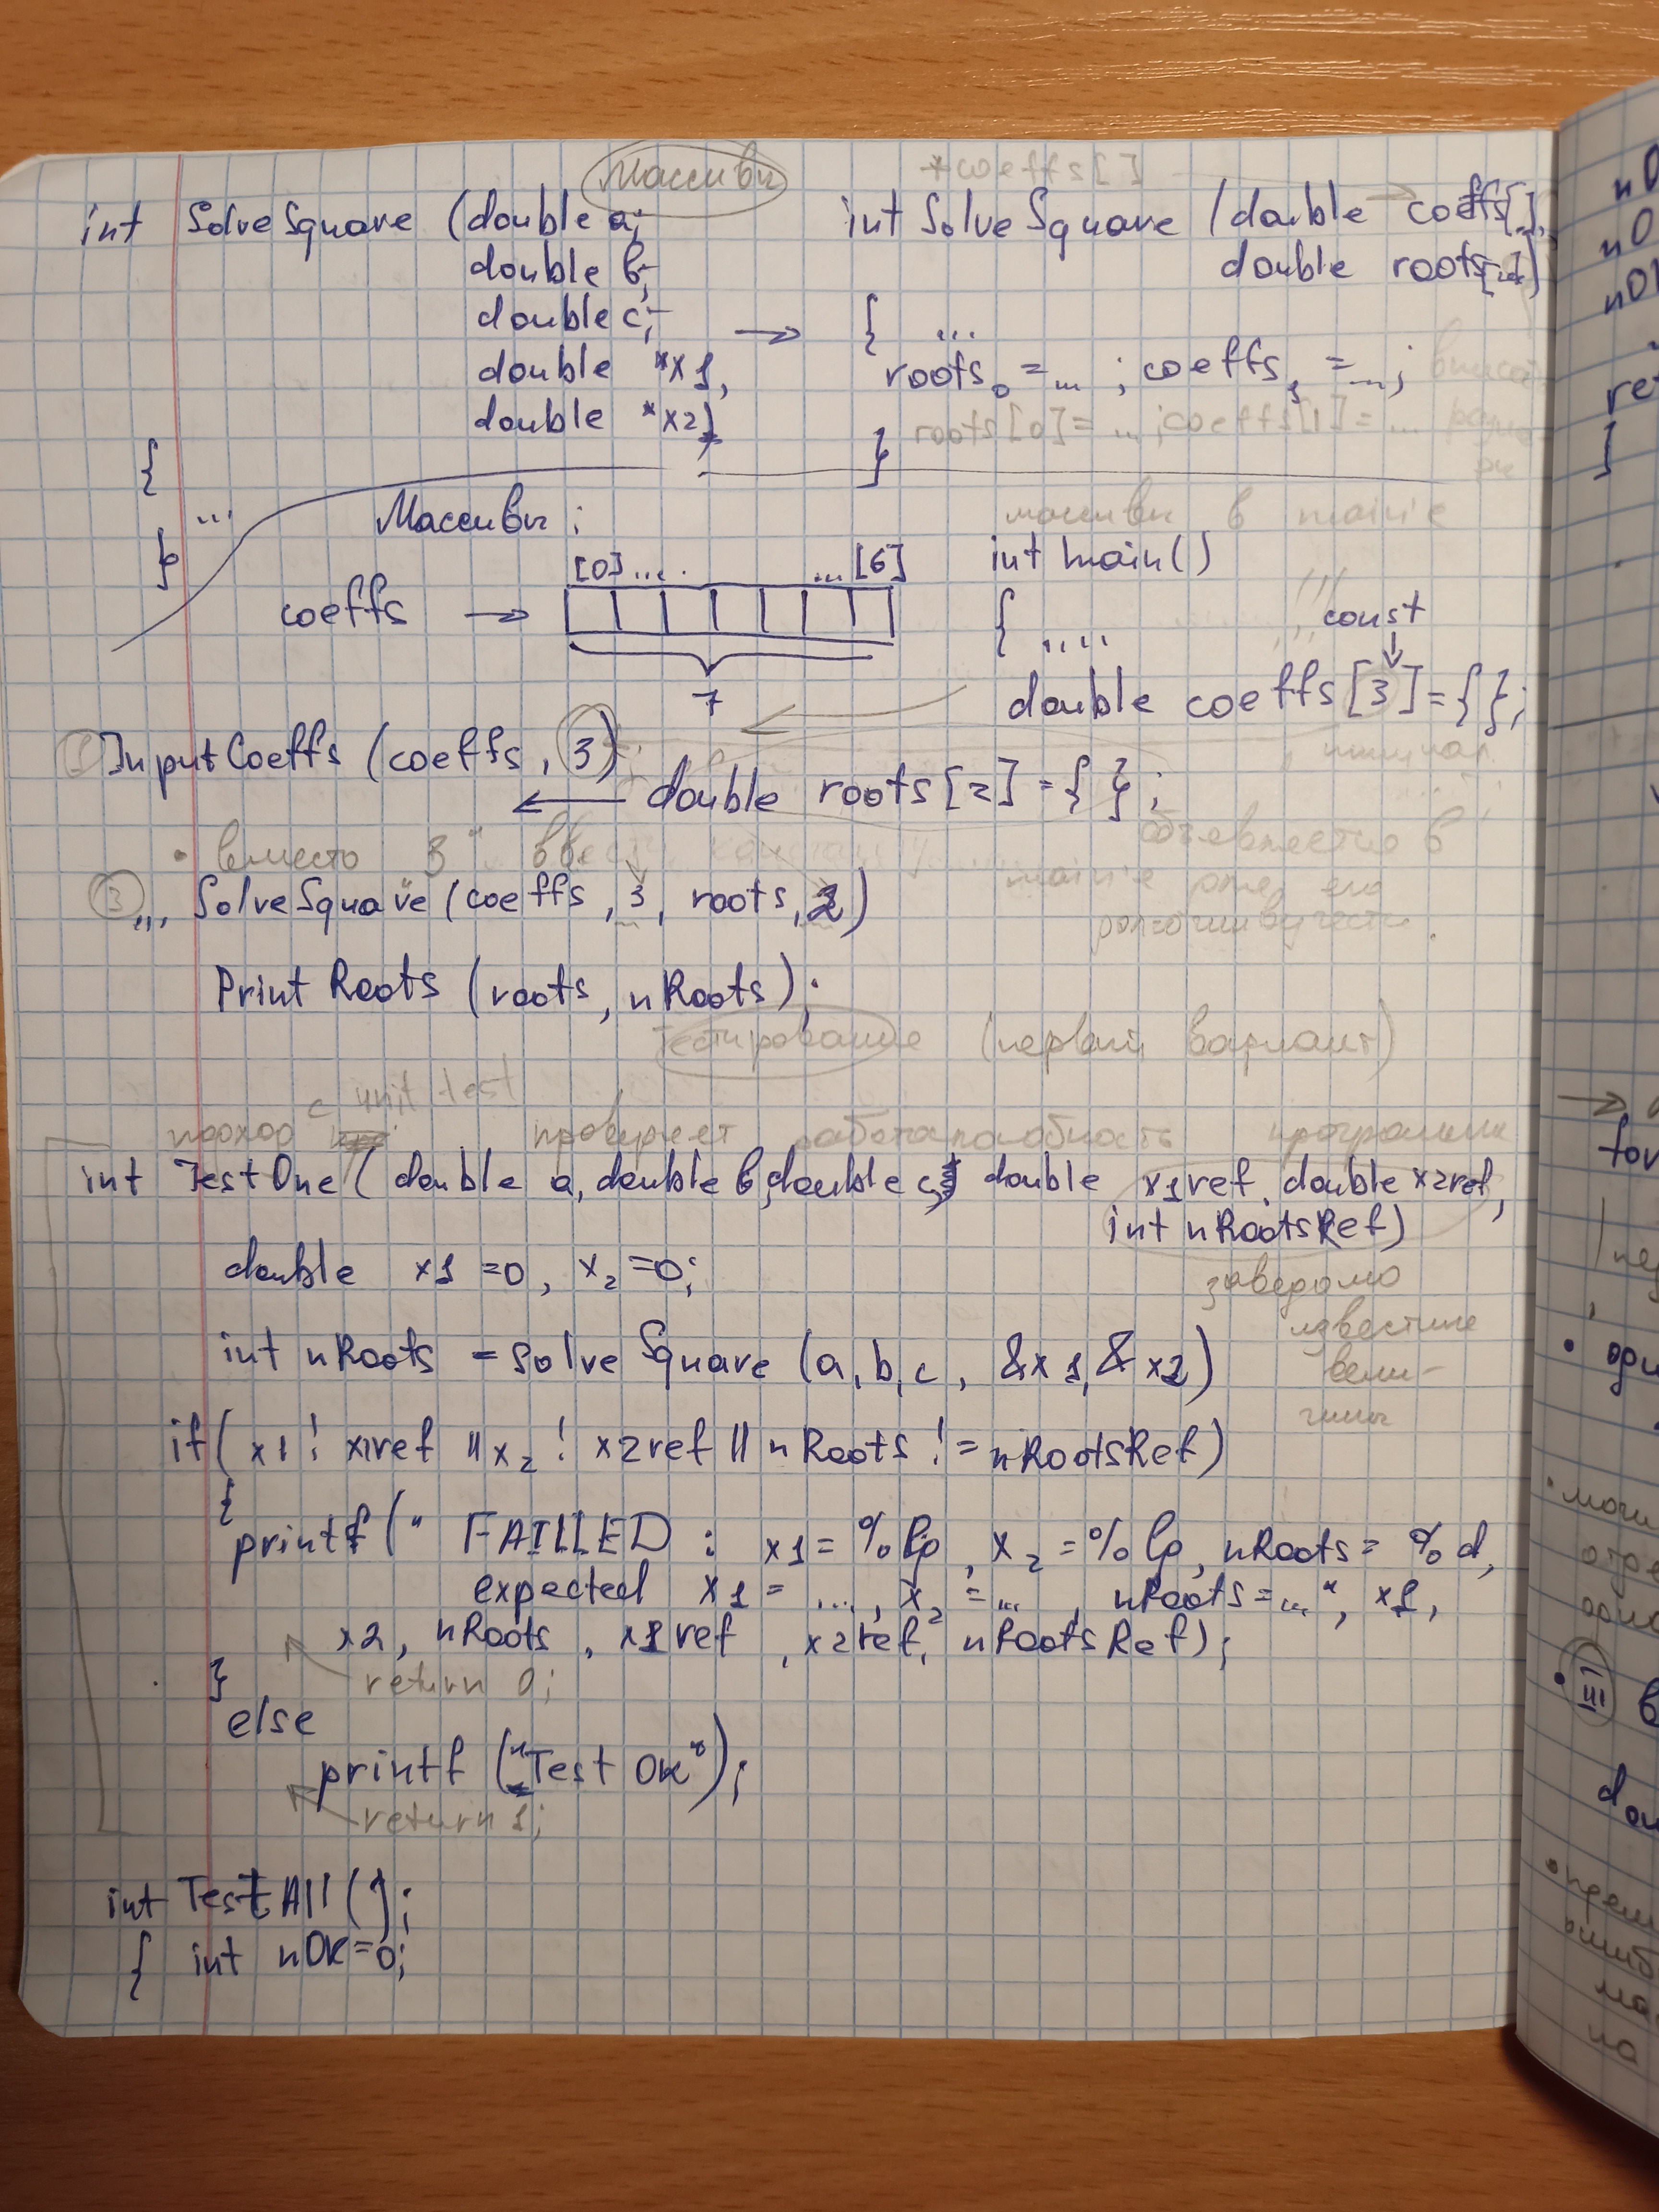 Массивы
*coeffs[]
int SolveSquare (double a,
double b,
double c,
double *x1,
double *x2)
{
...
}
→
int SolveSquare (double coeffs[],
double roots[])
{ ...
roots₀ = ... ; coeffs₁ = ...;
roots[0] = ... ; coeffs[1] = ...
}
Массивы:
[0] ... ... [6]
coeffs →
7
массивы в main'е
int main()
{ ....
const
double coeffs[3] = {};
① InputCoeffs (coeffs, 3)
← double roots[2] = { };
• вместо "3" ввести константу
в
main'е
③ ... SolveSquare (coeffs, 3, roots, 2)
Print Roots (roots, nRoots);
Тестирование (первый вариант)
с unit test
подход проверяет работаспособность программы
int TestOne ( double a, double b, double c, double x1ref, double x2ref,
int nRootsRef)
double x1 = 0, x₂ = 0;
заведомо
известные
вели-
чины
int nRoots = Solve Square (a, b, c, &x1, &x2)
if( x1 ! x1ref || x₂ ! x2ref || nRoots != nRootsRef)
{
printf (" FAILLED : x1 = %lg, x₂ = %lg, nRoots = %d,
expected x1 = ..., x₂ = ... , nRoots = ...", x1,
x2, nRoots, x1ref, x2ref, nRootsRef);
return 0;
}
else
printf ("Test OK");
return 1;
int TestAll ();
{ int nOK = 0;
ret
}
for
• III